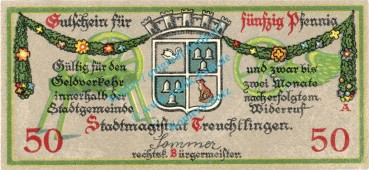 Gutschein für fünfzig Pfennig
Gültig für den
Geldverkehr
innerhalb der
Stadtgemeinde
und zwar bis
zwei Monate
nach erfolgtem
Widerruf
A
50 Stadtmagistrat Treuchtlingen. 50
Sommer
rechtsk. Bürgermeister.